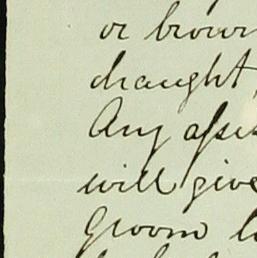 or brown
draught
Any assis
will give
Groom